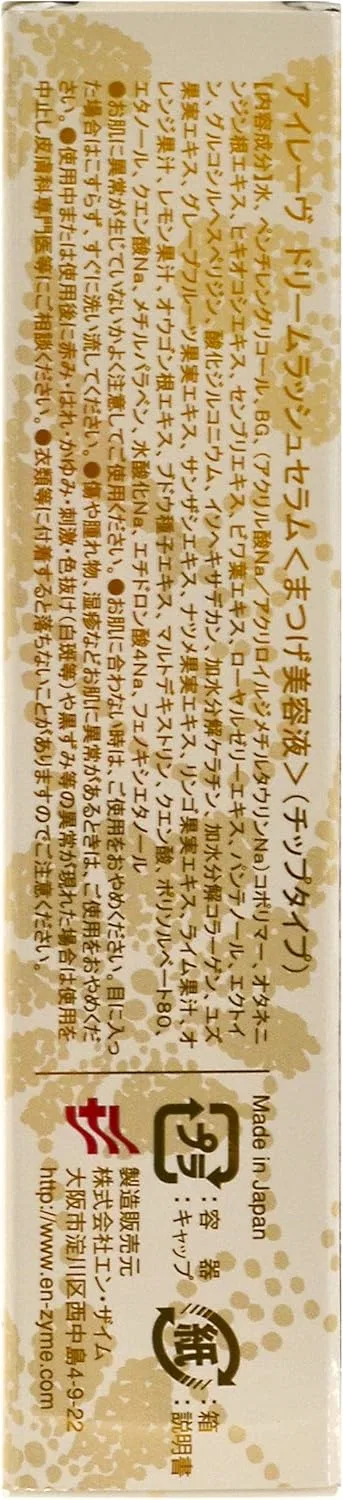 アイレーヴ ドリームラッシュセラム＜まつげ美容液＞(チップタイプ)
【内容成分】水、ペンチレングリコール、BG、(アクリル酸Na／アクリロイルジメチルタウリンNa)コポリマー、オタネニ
ンジン根エキス、ヒキオコシエキス、センブリエキス、ビワ葉エキス、ローヤルゼリーエキス、パンテノール、エクトイ
ン、グルコシルヘスペリジン、酸化ジルコニウム、イソヘキサデカン、加水分解ケラチン、加水分解コラーゲン、ユズ
果実エキス、グレープフルーツ果実エキス、サンザシエキス、ナツメ果実エキス、リンゴ果実エキス、ライム果汁、オ
レンジ果汁、レモン果汁、オウゴン根エキス、ブドウ種子エキス、マルトデキストリン、クエン酸、ポリソルベート80、
エタノール、クエン酸Na、メチルパラベン、水酸化Na、エチドロン酸4Na、フェノキシエタノール
●お肌に異常が生じていないかよく注意してご使用ください。●お肌に合わない時は、ご使用をおやめください。目に入っ
た場合はこすらず、すぐに洗い流してください。●傷や腫れ物、湿疹などお肌に異常があるときは、ご使用をおやめくだ
さい。●使用中または使用後に赤み・はれ・かゆみ・刺激・色抜け(白斑等)や黒ずみ等の異常が現れた場合は使用を
中止し皮膚科専門医等にご相談ください。●衣類等に付着すると落ちないことがありますのでご注意ください。
Made in Japan
プラ
：容器
：キャップ
紙
：箱
：説明書
製造販売元
株式会社エン・ザイム
大阪市淀川区西中島4-9-22
http://www.en-zyme.com